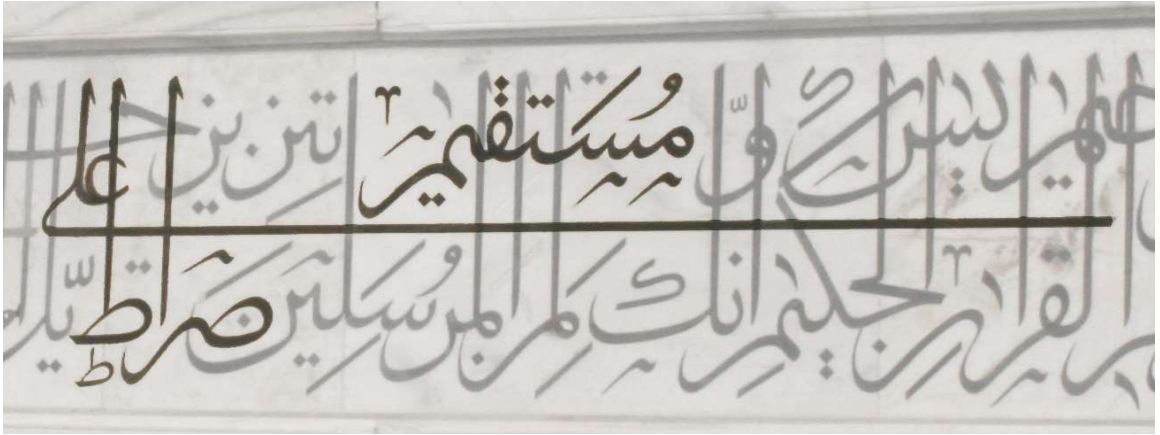 يس والقرآن الحكيم إنك لمن المرسلين على صراط مستقيم